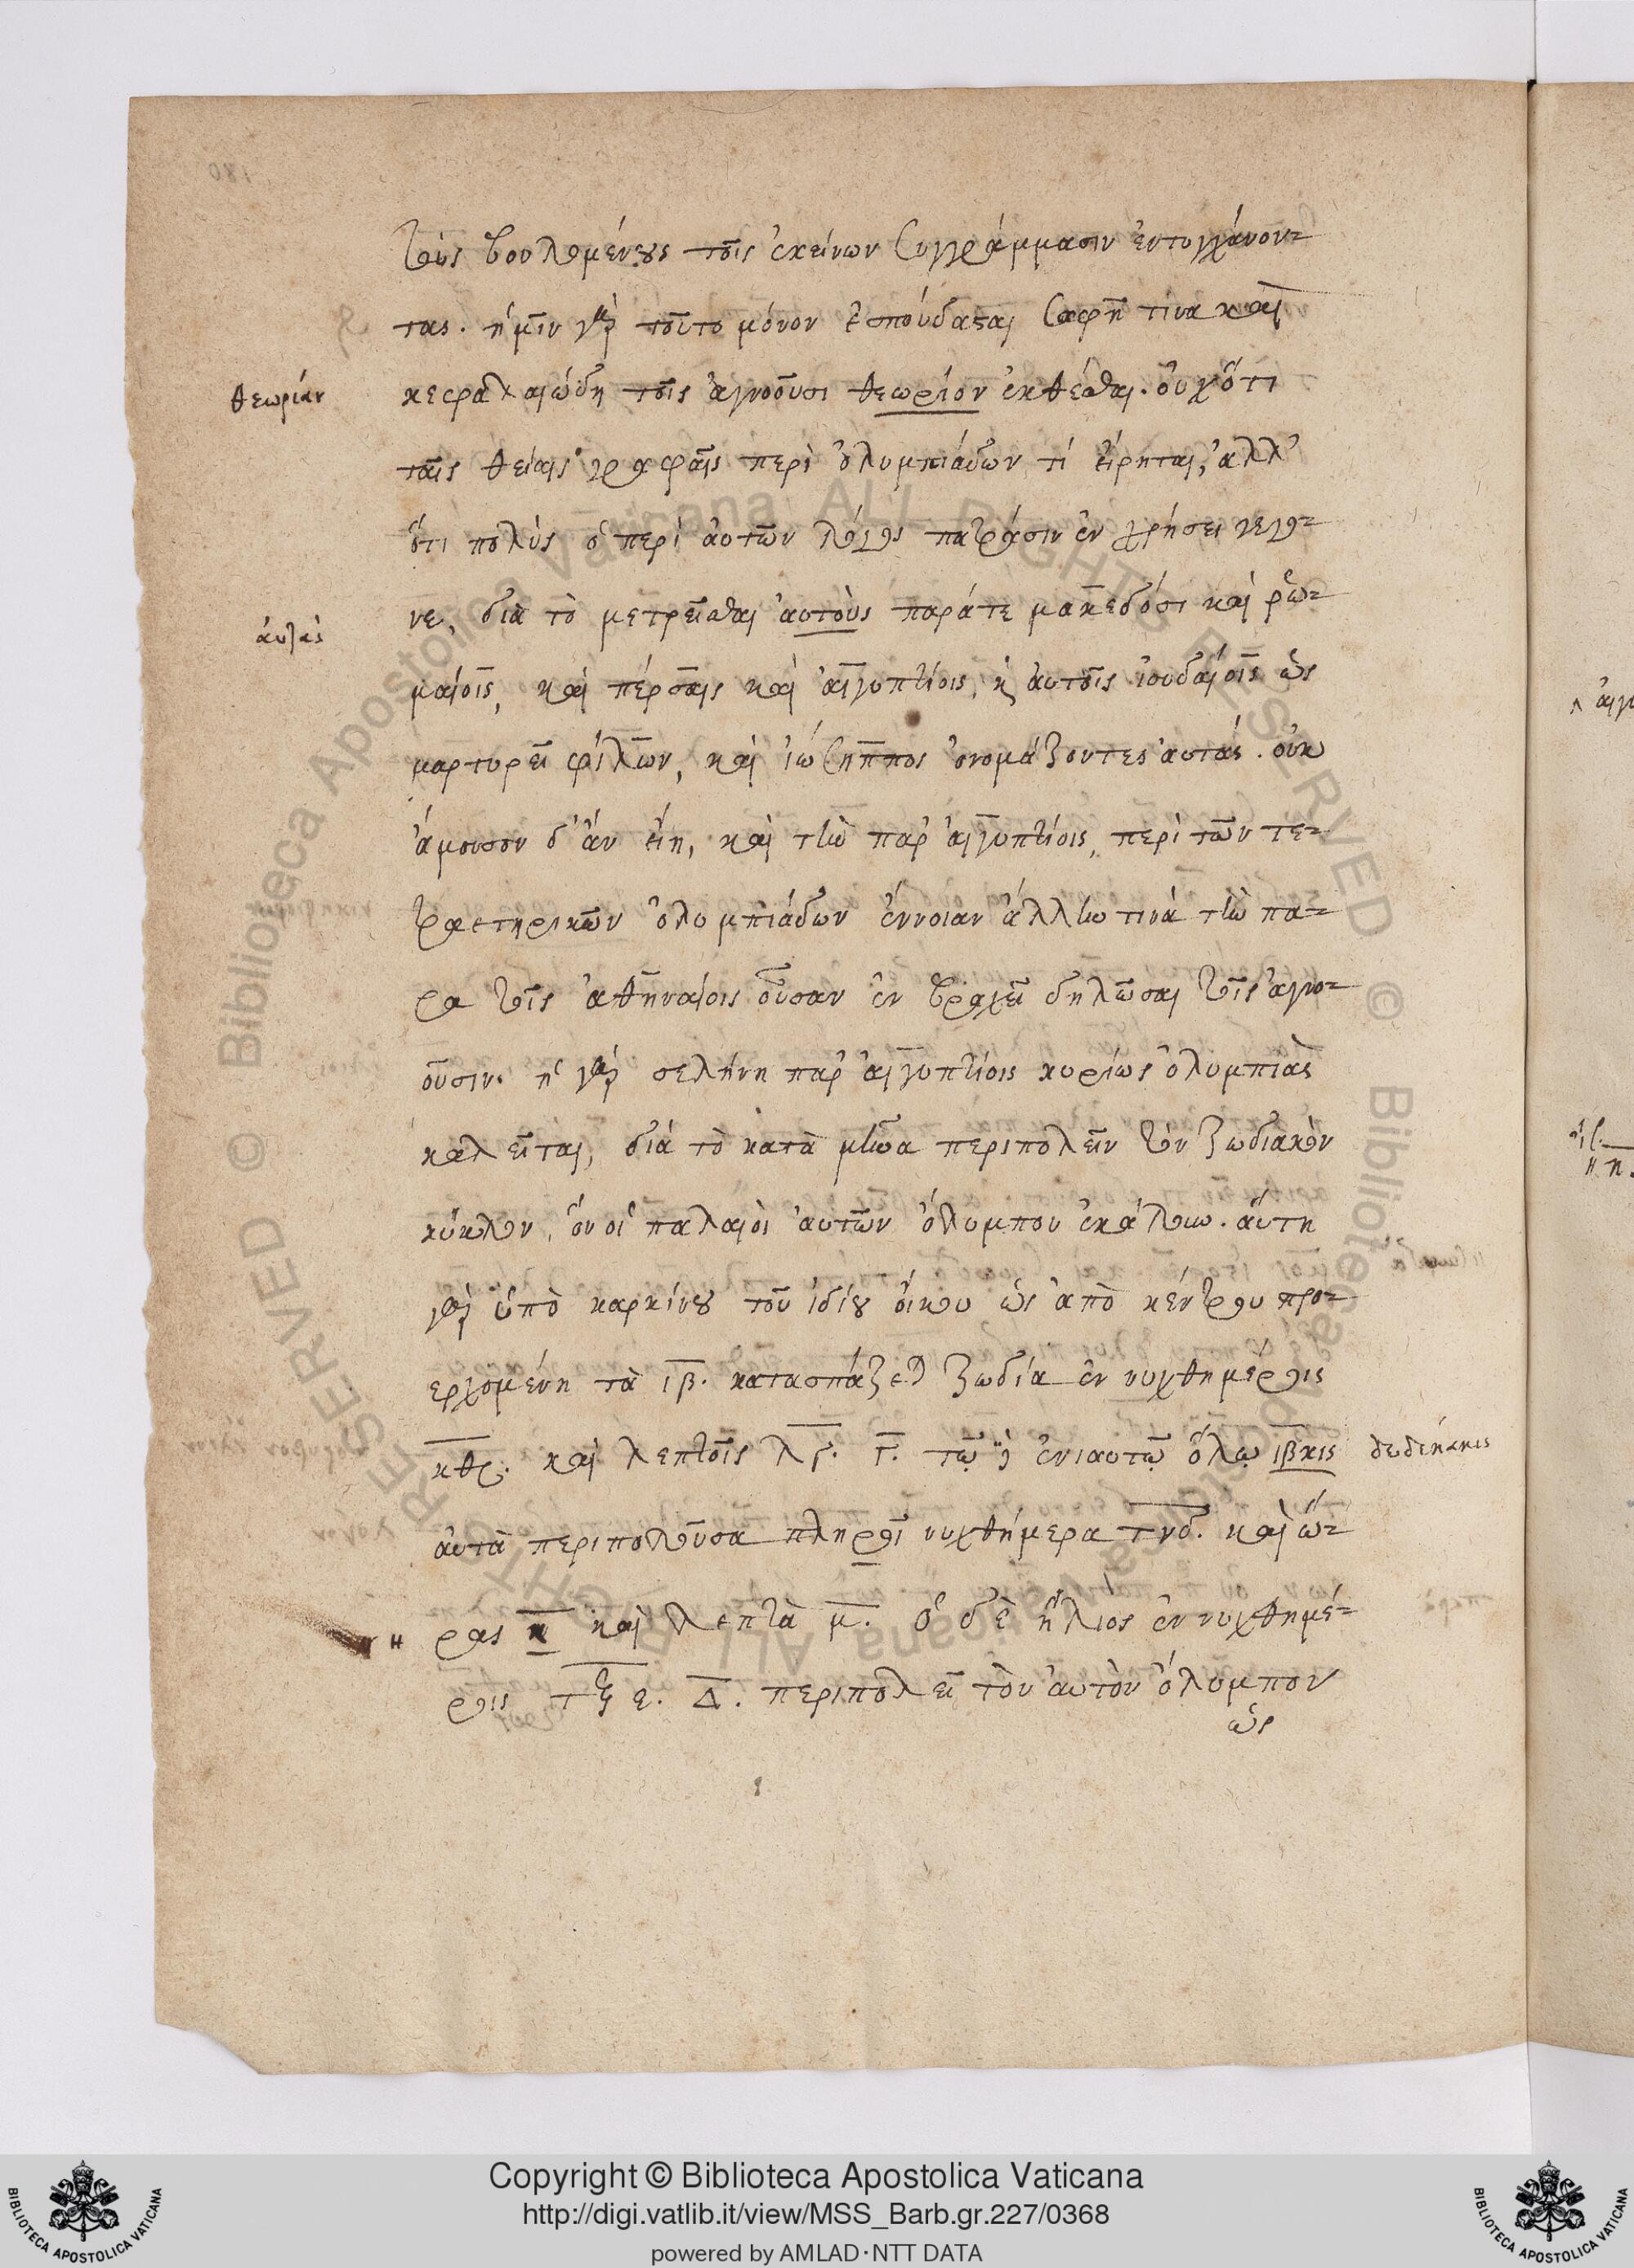 τοὺς βουλομένους τοῖς ἐκείνων συγγράμμασιν ἐντυγχάνον=
τας. ἡμῖν γὰρ τοῦτο μόνον ἐσπούδασται σαφῆ τινα καὶ
θεωρίαν
κεφαλαιώδη τοῖς ἀγνοοῦσι θεωρίον ἐκθέσθαι. οὐχ ὅτι
ταῖς θείαις γραφαῖς περὶ ὀλυμπιάδων τί εἴρηται, ἀλλ'
ὅτι πολὺς ὁ περὶ αὐτῶν λόγος πατράσιν ἐν χρήσει γέγο=
νε, διὰ τὸ μετρεῖσθαι αὐτοὺς παράτε μακεδόσι καὶ ῥω=
αὐτὰς
μαίοις, καὶ πέρσαις καὶ αἰγυπτίοις, κ αὐτοῖς ἰουδαίοις ὡς
μαρτυρεῖ φίλων, καὶ ἰώσηππος ὀνομάζοντες αὐτάς. οὐκ
ἄμουσον δ' ἂν εἴη, καὶ τὴν παρ' αἰγυπτίοις, περὶ τῶν τε=
τραετηρικῶν ὀλυμπιάδων ἔννοιαν ἄλλην τινά τὴν πα=
ρα τοῖς ἀθηναίοις οὖσαν ἐν βραχεῖ δηλῶσαι τοῖς ἀγνο=
οῦσιν. ἡ γὰρ σελήνη παρ' αἰγυπτίοις κυρίως ὀλυμπιὰς
καλεῖται, διὰ τὸ κατὰ μῆνα περιπολεῖν τὸν ζωδιακὸν
κύκλον, ὃν οἱ παλαιοὶ αὐτῶν ὄλυμπον ἐκάλουν. αὕτη
γὰρ ὑπὸ καρκίνου τοῦ ἰδίου οἴκου ὡς ἀπὸ κέντρου προ=
ερχομένη τὰ ιβ. κατασπάζεται ζωδία ἐν νυχθημέροις
κθ. καὶ λεπτοῖς λγ. γ. τῷ δὲ ἐνιαυτῷ ὅλῳ ιβκις δωδεκάκις
αὐτὰ περιπολοῦσα πληροῖ νυχθήμερα τνδ. καὶ ὥ=
η ρας κ καὶ λεπτὰ μ. ὁ δὲ ἥλιος ἐν νυχθημέ=
ροις τξε. Δ. περιπολεῖ τὸν αὐτὸν ὄλυμπον
ὡς
Copyright © Biblioteca Apostolica Vaticana
http://digi.vatlib.it/view/MSS_Barb.gr.227/0368
powered by AMLAD·NTT DATA
BIBLIOTECA APOSTOLICA VATICANA
BIBLIOTECA APOSTOLICA VATICANA